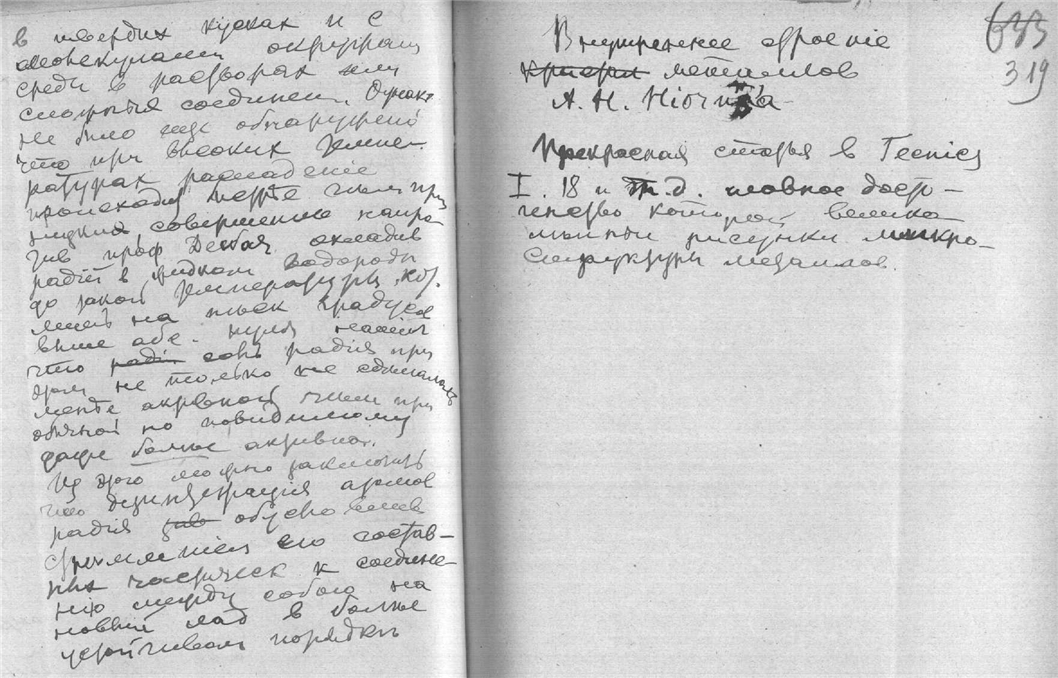 в твердих кусках и с
молекулами окружащ
среди в растворах или
сложныя соединен. Однак
не било еще обнаружено
что при високих темпе-
ратурах распадение
происходит чем при
низких совершенно напро-
тив проф Дьюар охладив
радiй в жидком водороди
до такой температуры,
лишь на градусов
више абс. нуля нашел
что радi соль радiя при
этом не только не сделалась
менее активной чем при
обычной но повидимому
даже более активна.
Из этого можно заключить
что дезинтеграцiя атомов
радiя обусловлена
стремленiем его состав-
них частичек к соедине-
нiю между собою на
новый лад в более
устойчивом порядке
633
319
Внутреннее строенiе
кристал металлов
А. Н.
Прекрасная статья в
I. 18 и т.д. главное дост-
инство которой велико-
лепные рисунки микро-
структуры металлов.